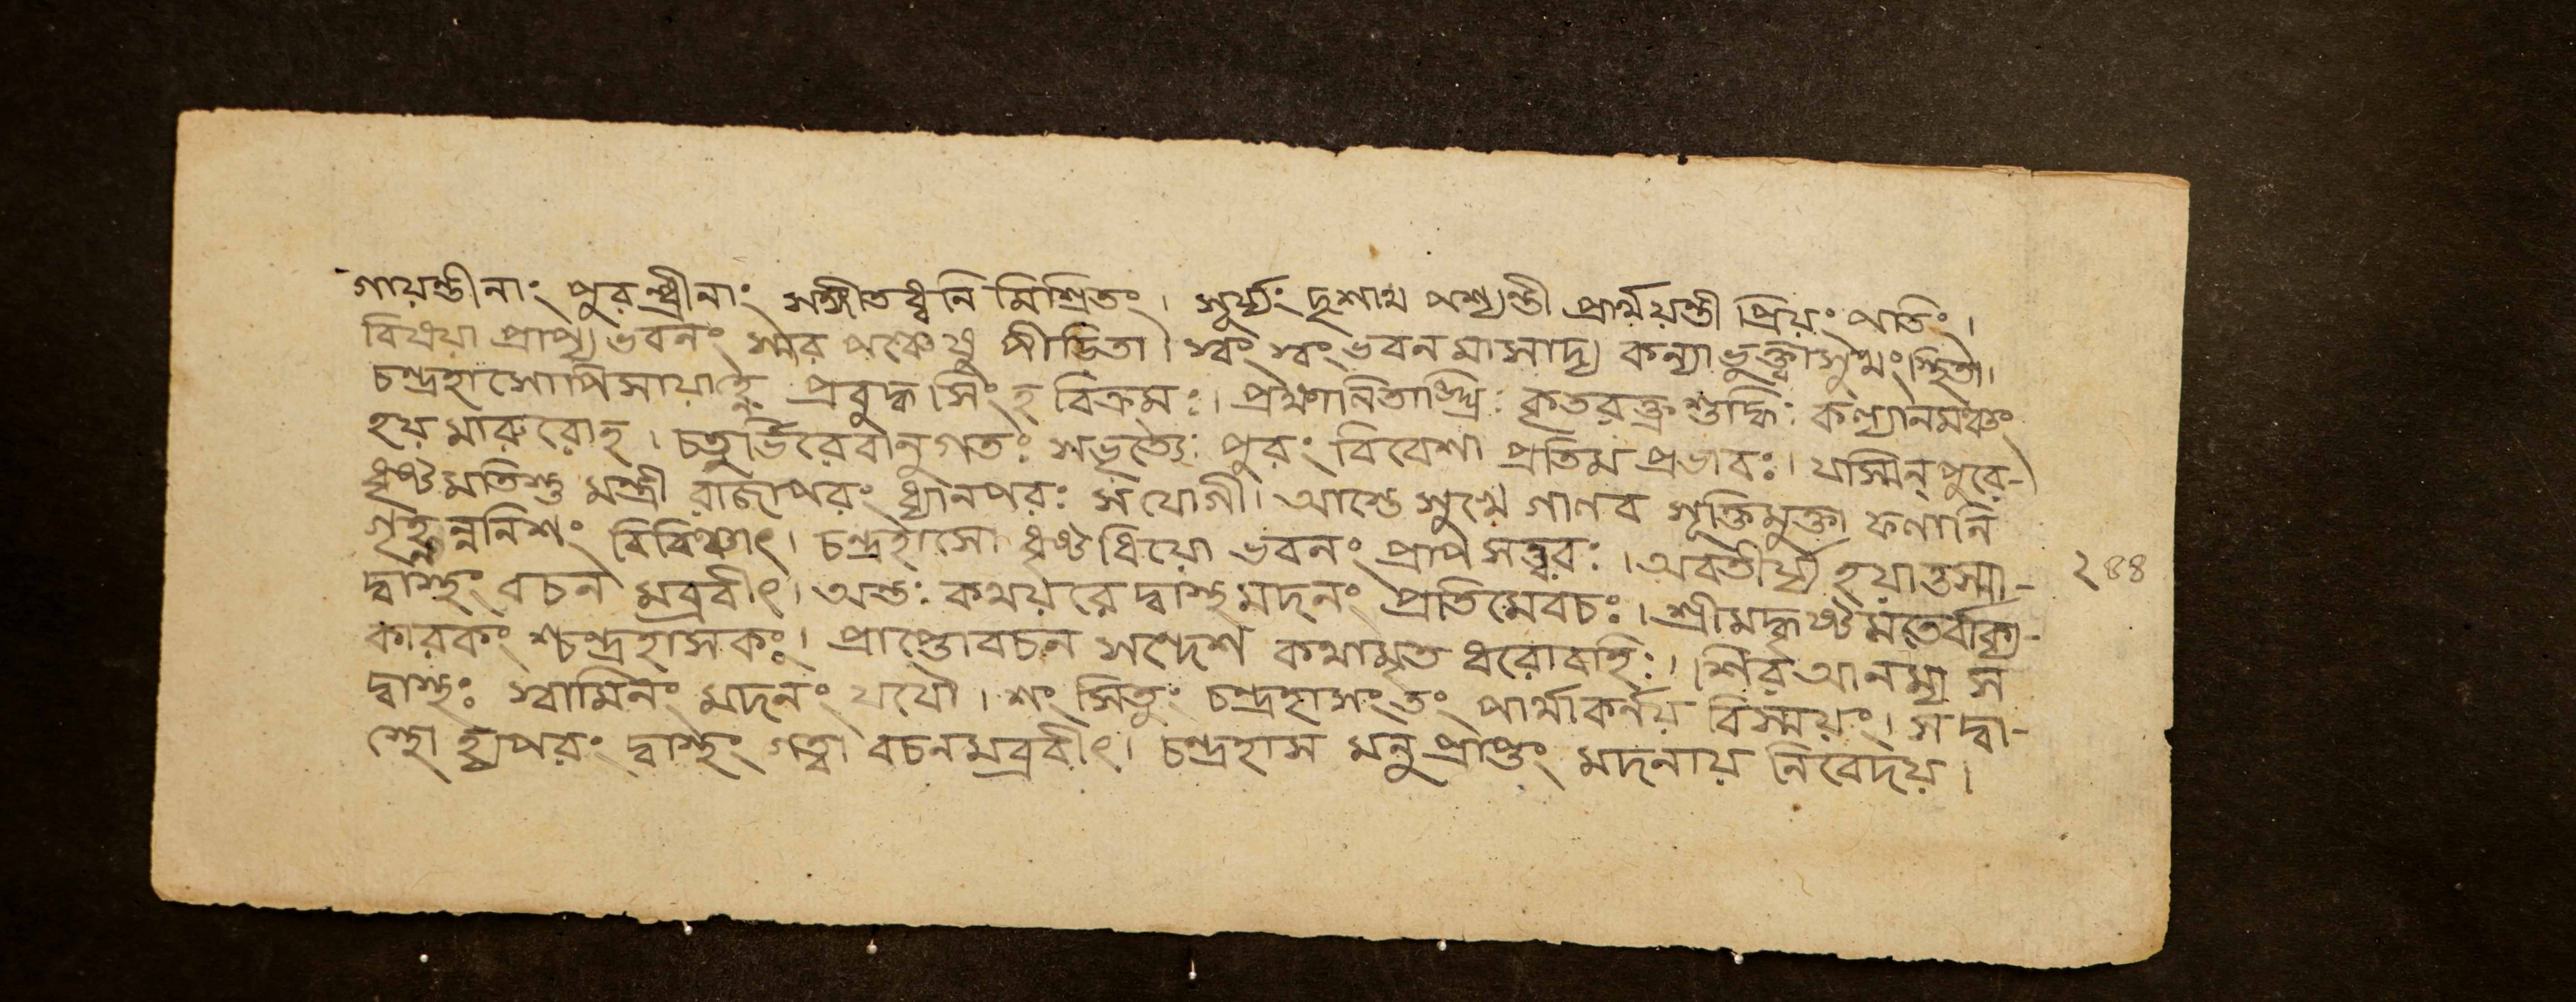 গায়ন্তীনাং পুরন্ধ্রীনাং সঙ্গীতধ্বনি মিশ্রিতং। সূর্য্যং দৃশাথ পশ্যন্তী প্রার্থয়ন্তী প্রিয়ং পতিং।
বিষয়া প্রাপ্য ভবনং স্মর পঞ্চেষু পীড়িতা। স্বং স্বং ভবন মাসাদ্য কন্যা ভুক্ত্বা সুখং স্থিতা।
চন্দ্রহাসোপি সায়াহ্নে প্রবুদ্ধ সিংহ বিক্রমঃ। প্রক্ষালিতাঙ্ঘ্রিঃ কৃতবক্ত্রশুদ্ধিঃ কল্যানমঞ্চং
হয় মারুরোহ। চতুর্ভিরেবানুগতঃ সভৃত্যৈঃ পুরং বিবেশা প্রতিম প্রভাবঃ। যস্মিন্ পুরে-
ধৃষ্টমতিস্তু মন্ত্রী রাজাপরং ধ্যানপরঃ স যোগী। আস্তে সুখে গাণব সূক্তিমুক্তা ফলানি
গৃহ্নন্ননিশং বিবিঞ্চাৎ। চন্দ্রহাসো ধৃষ্টধিয়ো ভবনং প্রাপ সত্ত্বরঃ। অবতীর্য্য হয়াত্তস্মা- ২৪৪
দ্বাস্থং বচন মব্রবীৎ। অন্তঃ কথয়রে দ্বাস্থ মদনং প্রতি মেবচঃ। শ্রীমদ্ধৃষ্টমতের্বাক্য-
কারকং শ্চন্দ্রহাসকঃ। প্রাপ্তোবচন সন্দেশ কথামৃত ধরোবহিঃ। শির আনম্য স
দ্বাস্থঃ স্বামিনং মদনং যযৌ। শং সিতুং চন্দ্রহাসং তং পার্থাকর্নয় বিস্ময়ং। স দ্বা-
স্থো হ্যপরং দ্বাস্থং গত্বা বচনমব্রবীৎ। চন্দ্রহাস মনুপ্রাপ্তং মদনায় নিবেদয়।